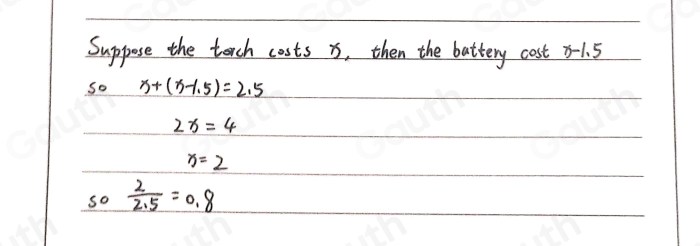 Suppose the torch costs x, then the battery cost x-1.5
so x+(x-1.5)=2.5
2x=4
x=2
so 2/2.5 = 0.8